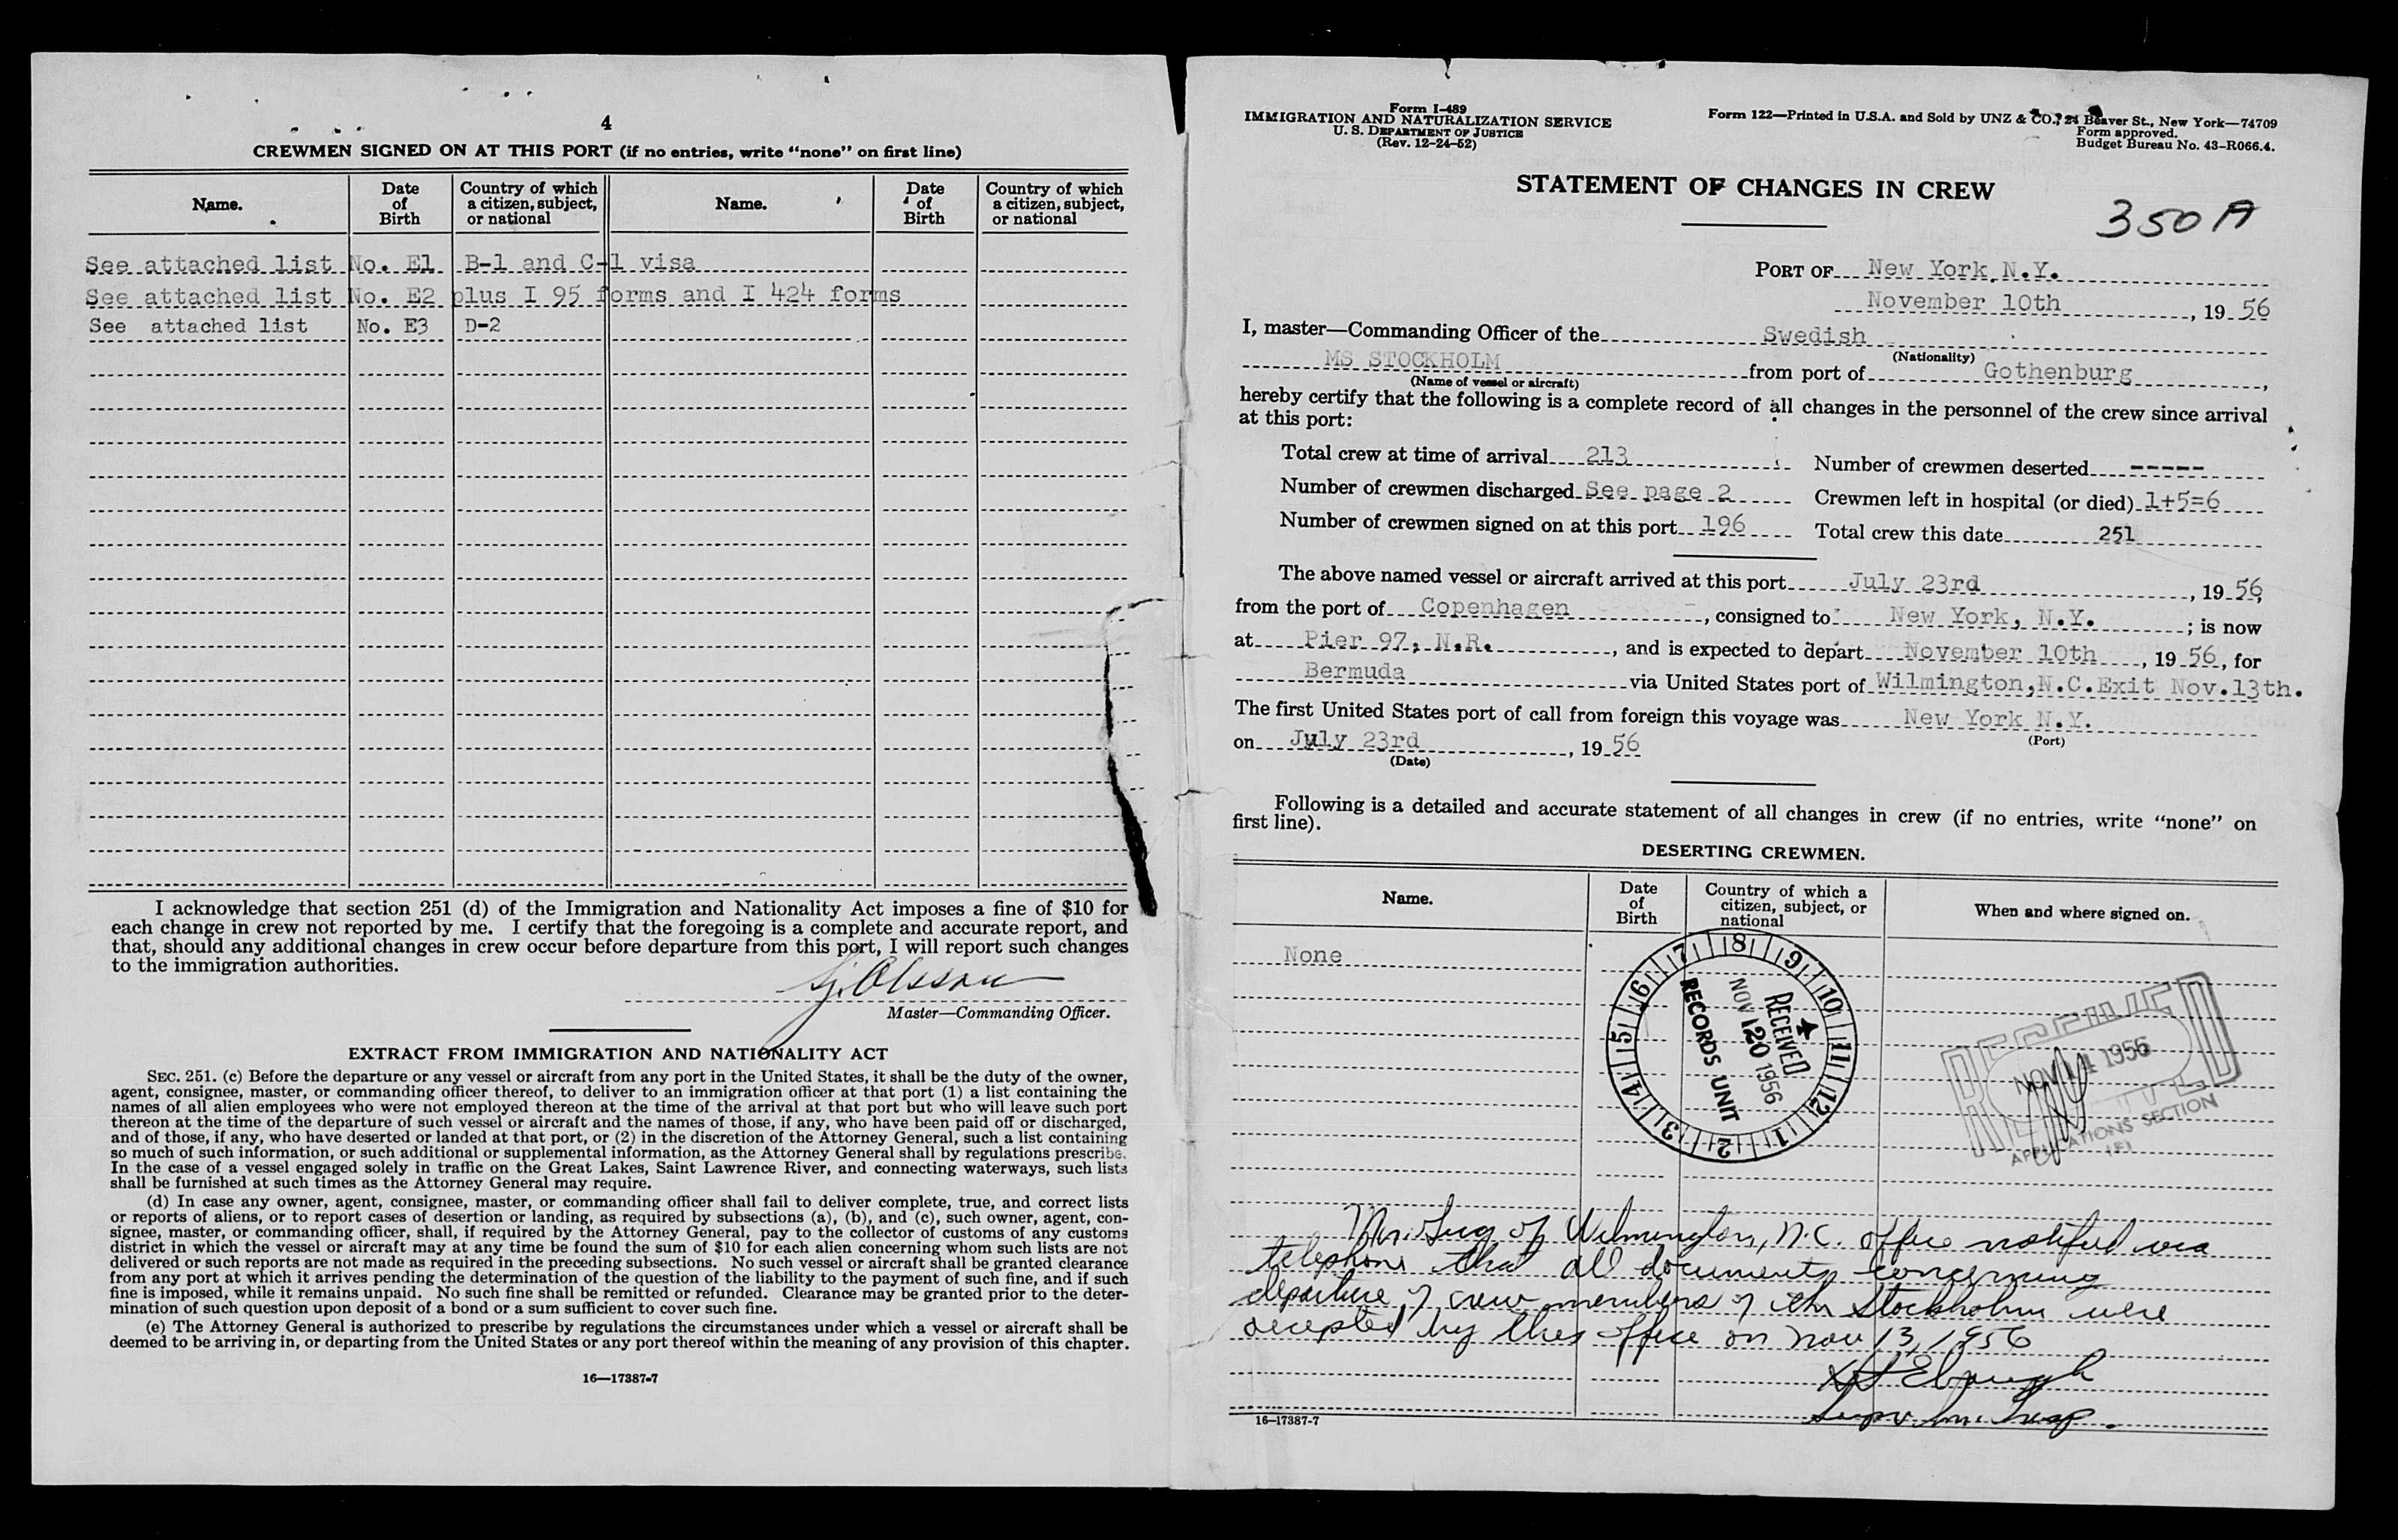 4
CREWMEN SIGNED ON AT THIS PORT (if no entries, write “none” on first line)
Name.
Date of Birth
Country of which a citizen, subject, or national
Name.
Date of Birth
Country of which a citizen, subject, or national
See attached list No. E1 B-1 and C-1 visa
See attached list No. E2 plus I 95 forms and I 424 forms
See attached list No. E3 D-2
I acknowledge that section 251 (d) of the Immigration and Nationality Act imposes a fine of $10 for
each change in crew not reported by me. I certify that the foregoing is a complete and accurate report, and
that, should any additional changes in crew occur before departure from this port, I will report such changes
to the immigration authorities.
Olsson
Master—Commanding Officer.
EXTRACT FROM IMMIGRATION AND NATIONALITY ACT
SEC. 251. (c) Before the departure or any vessel or aircraft from any port in the United States, it shall be the duty of the owner,
agent, consignee, master, or commanding officer thereof, to deliver to an immigration officer at that port (1) a list containing the
names of all alien employees who were not employed thereon at the time of the arrival at that port but who will leave such port
thereon at the time of the departure of such vessel or aircraft and the names of those, if any, who have been paid off or discharged,
and of those, if any, who have deserted or landed at that port, or (2) in the discretion of the Attorney General, such a list containing
so much of such information, or such additional or supplemental information, as the Attorney General shall by regulations prescribe.
In the case of a vessel engaged solely in traffic on the Great Lakes, Saint Lawrence River, and connecting waterways, such lists
shall be furnished at such times as the Attorney General may require.
(d) In case any owner, agent, consignee, master, or commanding officer shall fail to deliver complete, true, and correct lists
or reports of aliens, or to report cases of desertion or landing, as required by subsections (a), (b), and (c), such owner, agent, con-
signee, master, or commanding officer, shall, if required by the Attorney General, pay to the collector of customs of any customs
district in which the vessel or aircraft may at any time be found the sum of $10 for each alien concerning whom such lists are not
delivered or such reports are not made as required in the preceding subsections. No such vessel or aircraft shall be granted clearance
from any port at which it arrives pending the determination of the question of the liability to the payment of such fine, and if such
fine is imposed, while it remains unpaid. No such fine shall be remitted or refunded. Clearance may be granted prior to the deter-
mination of such question upon deposit of a bond or a sum sufficient to cover such fine.
(e) The Attorney General is authorized to prescribe by regulations the circumstances under which a vessel or aircraft shall be
deemed to be arriving in, or departing from the United States or any port thereof within the meaning of any provision of this chapter.
16—17387-7
Form I-489
IMMIGRATION AND NATURALIZATION SERVICE
U. S. DEPARTMENT OF JUSTICE
(Rev. 12-24-52)
Form 122—Printed in U.S.A. and Sold by UNZ & CO., 24 Beaver St., New York—74709
Form approved.
Budget Bureau No. 43-R066.4.
STATEMENT OF CHANGES IN CREW
350 A
PORT OF New York N.Y.
November 10th, 19 56
I, master—Commanding Officer of the Swedish
(Nationality)
MS STOCKHOLM from port of Gothenburg,
(Name of vessel or aircraft)
hereby certify that the following is a complete record of all changes in the personnel of the crew since arrival
at this port:
Total crew at time of arrival 213 Number of crewmen deserted -----
Number of crewmen discharged See page 2 Crewmen left in hospital (or died) 1+5=6
Number of crewmen signed on at this port 196 Total crew this date 251
The above named vessel or aircraft arrived at this port July 23rd, 19 56,
from the port of Copenhagen, consigned to New York, N.Y.; is now
at Pier 97, N.R., and is expected to depart November 10th, 19 56, for
Bermuda via United States port of Wilmington,N.C.Exit Nov.13th.
The first United States port of call from foreign this voyage was New York N.Y.
(Port)
on July 23rd, 19 56
(Date)
Following is a detailed and accurate statement of all changes in crew (if no entries, write “none” on
first line).
DESERTING CREWMEN.
Name.
Date of Birth
Country of which a citizen, subject, or national
When and where signed on.
None
7 8 9 10 11 12 1 2 3 4 5 6
RECEIVED
NOV 20 1956
RECORDS UNIT
RECEIVED
NOV 14 1956
APPLICATIONS SECTION
Mr. of Wilmington, N.C. office notified via
telephone that all documents concerning
departure of crew members of the Stockholm were
accepted by this office on Nov 13, 1956
Ebaugh
Supv. Im. Insp.
16—17387-7